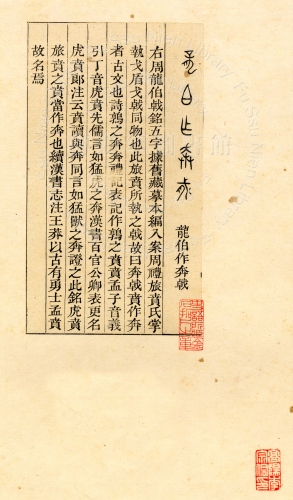 龍伯作奔戟
龍伯作奔戟
右周龍伯戟銘五字據舊藏摹本編入案周禮旅賁氏掌
執戈盾戈戟同物也此旅賁所執之戟故曰奔戟賁作奔
者古文也詩鶉之奔奔禮記表記作鶉之賁賁孟子音義
引丁音虎賁先儒言如猛虎之奔漢書百官公卿表更名
虎賁郎注云賁讀與奔同言如猛獸之奔證之此銘虎賁
旅賁之賁當作奔也續漢書志注王莽以古有勇士孟賁
故名焉